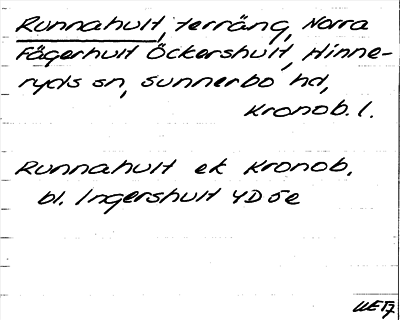 Runnahult, terräng, Norra
Fägerhult Öckershult, Hinne-
ryds sn, Sunnerbo hd,
Kronob. l.
Runnahult ek Kronob.
bl. Ingershult 4D5e